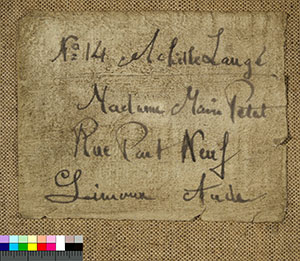 No. 14 Achille Laugé
Madame Marie Petet
Rue Pont Neuf
Limoux Aude